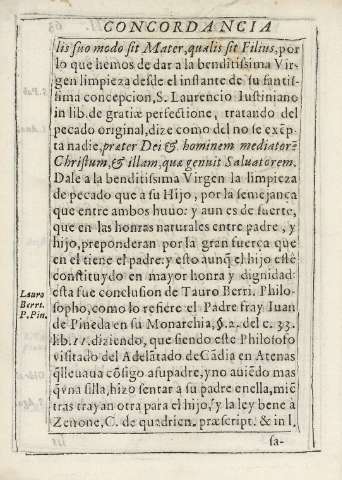 CONCORDANCIA
lis suo modo sit Mater, qualis sit Filius, por
lo que hemos de dar a la benditissima Vir-
gen limpieza desde el instante de su santis-
sima concepcion, S. Laurencio Iustiniano
in lib. de gratiæ perfectione, tratando del
pecado original, dize como del no se excẽp
ta nadie, præter Dei & hominem mediatorẽ
Christum, & illam, quæ genuit Saluatorem.
Dase a la benditissima Virgen la limpieza
de pecado que a su Hijo, por la semejança
que entre ambos huuo: y aun es de suerte,
que en las honras naturales entre padre, y
hijo, preponderan por la gran fuerça que
en el tiene el padre: y esto aunq̃ el hijo estè
constituydo en mayor honra y dignidad:
esta fue conclusion de Tauro Berri. Philo-
sopho, como lo refiere el Padre fray Iuan
de Pineda en su Monarchia, §. 2. del c. 33.
lib. 11. diziendo, que siendo este Philosofo
visitado del Adelãtado de Cãdia en Atenas
q̃lleuaua cõsigo a su padre, y no auiẽdo mas
q̃ vna silla, hizo sentar a su padre en ella, miẽ
tras trayan otra para el hijo, y la ley bene à
Zenone, C. de quadrien. præscript. & in l.
sa-
Lauro
Berri.
P. Pin.